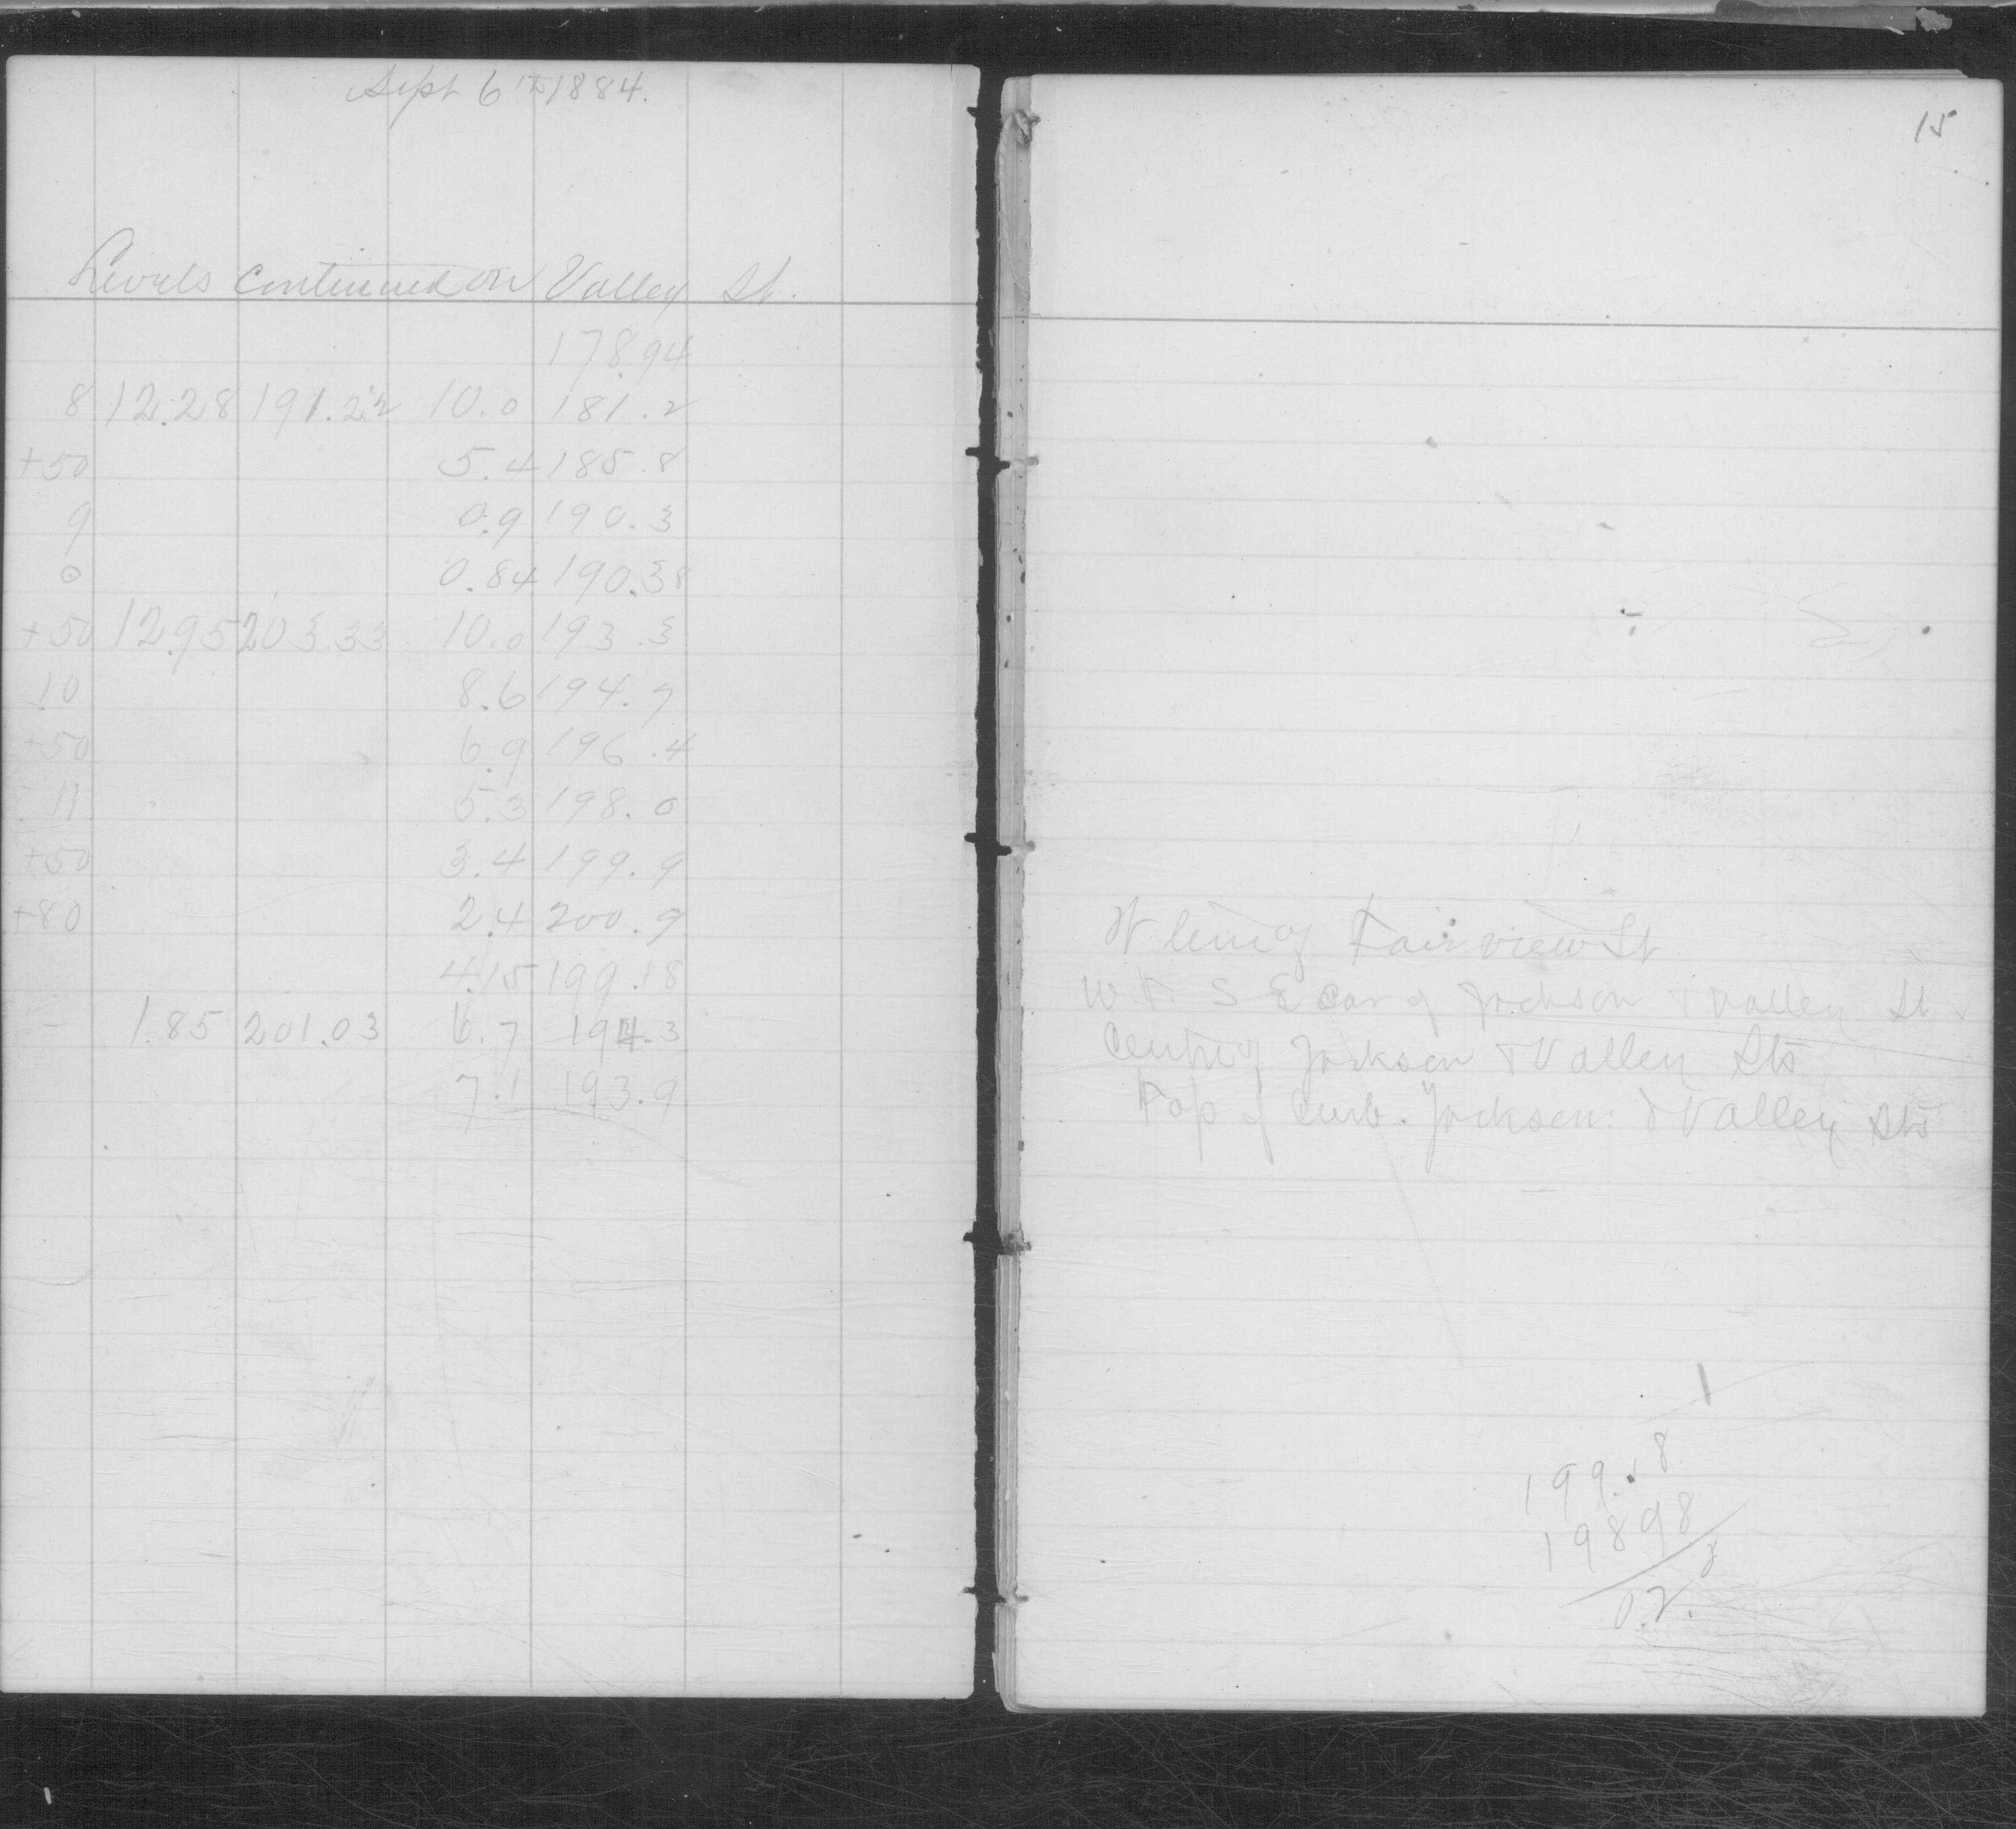 Sept 6th 1884.
Levels continued on Valley St.
178.94
8 12.28 191.22 10.0 181.2
+50 5.4 185.8
9 0.9 190.3
0 0.84 190.38
+50 12.95 203.33 10.0 193.3
10 8.6 194.7
+50 6.9 196.4
11 5.3 198.0
+50 3.4 199.9
+80 2.4 200.9
4.15 199.18
- 1.85 201.03 6.7 194.3
7.1 193.9
15
W line of Fairview St
S E Cor of Jackson & Valley St
Centre of Jackson & Valley Sts
Top of Curb. Jackson & Valley Sts
199.18
198 98
0.2